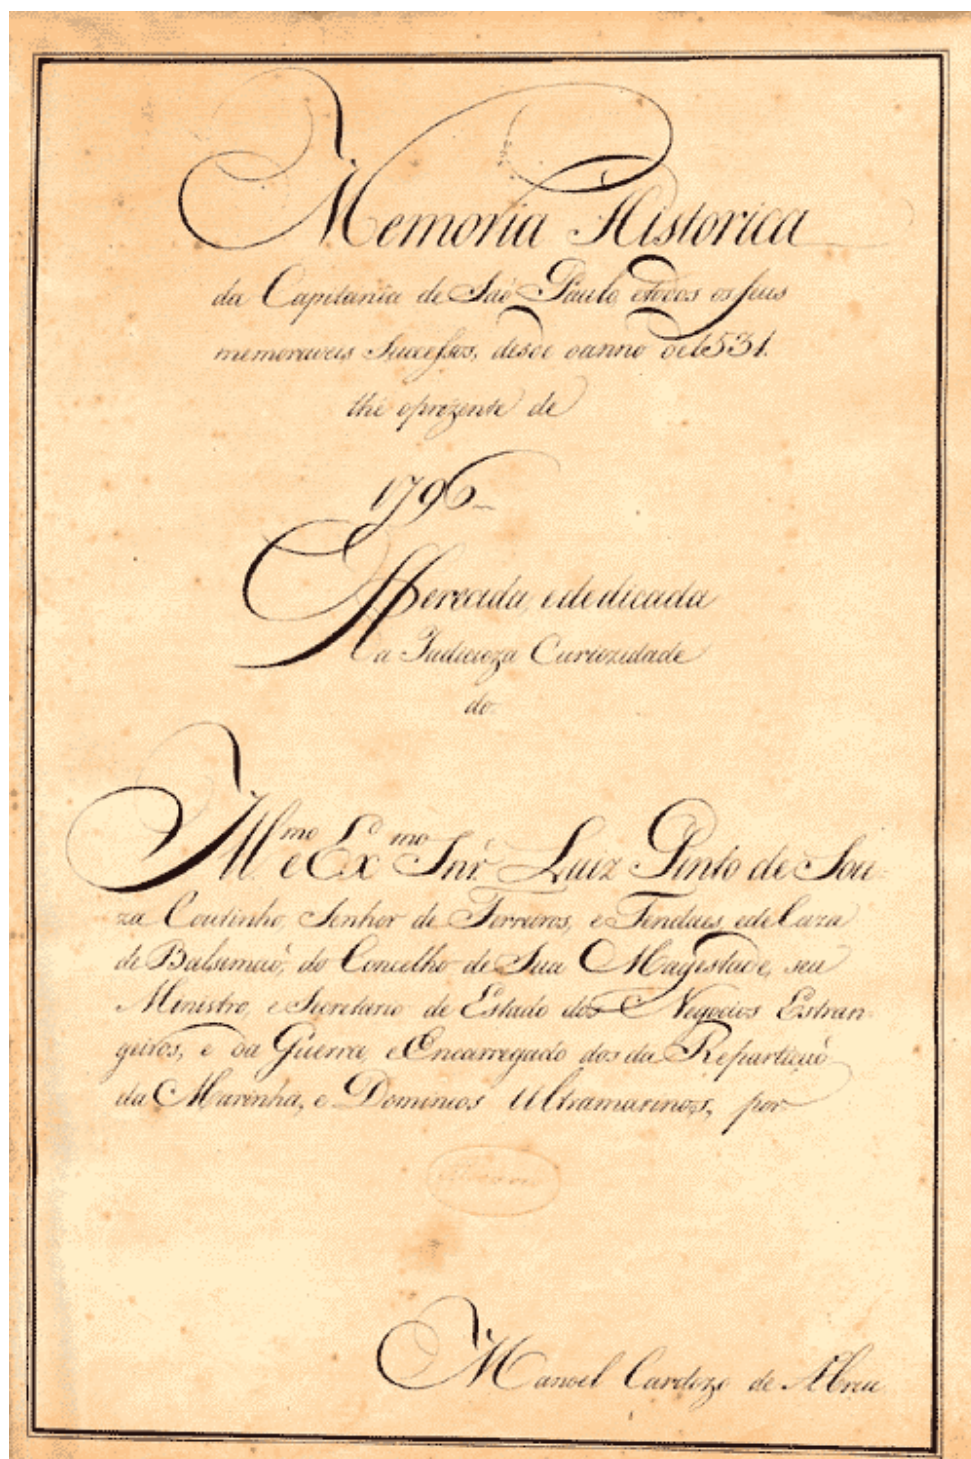 Memoria Historica
da Capitania de Saõ Paulo, etodos os seus
memoraveis Successos, desde oanno de1531.
thé oprezente de
1796
Offerecida, ededicada
a Judicioza Curiozidade
do
Ill.mo e Ex.mo Snr. Luiz Pinto de Sou
za Coutinho, Senhor de Ferreiros, e Tendaes, edeCaza
de Balsemaõ, do Concelho de Sua Magestade, seu
Ministro, e Secretario de Estado dos Negocios Estran
geiros, e da Guerra, e Encarregado dos da Repartiçaõ
da Marinha, e Dominios Ultramarinos, por
Manoel Cardozo de Abreu